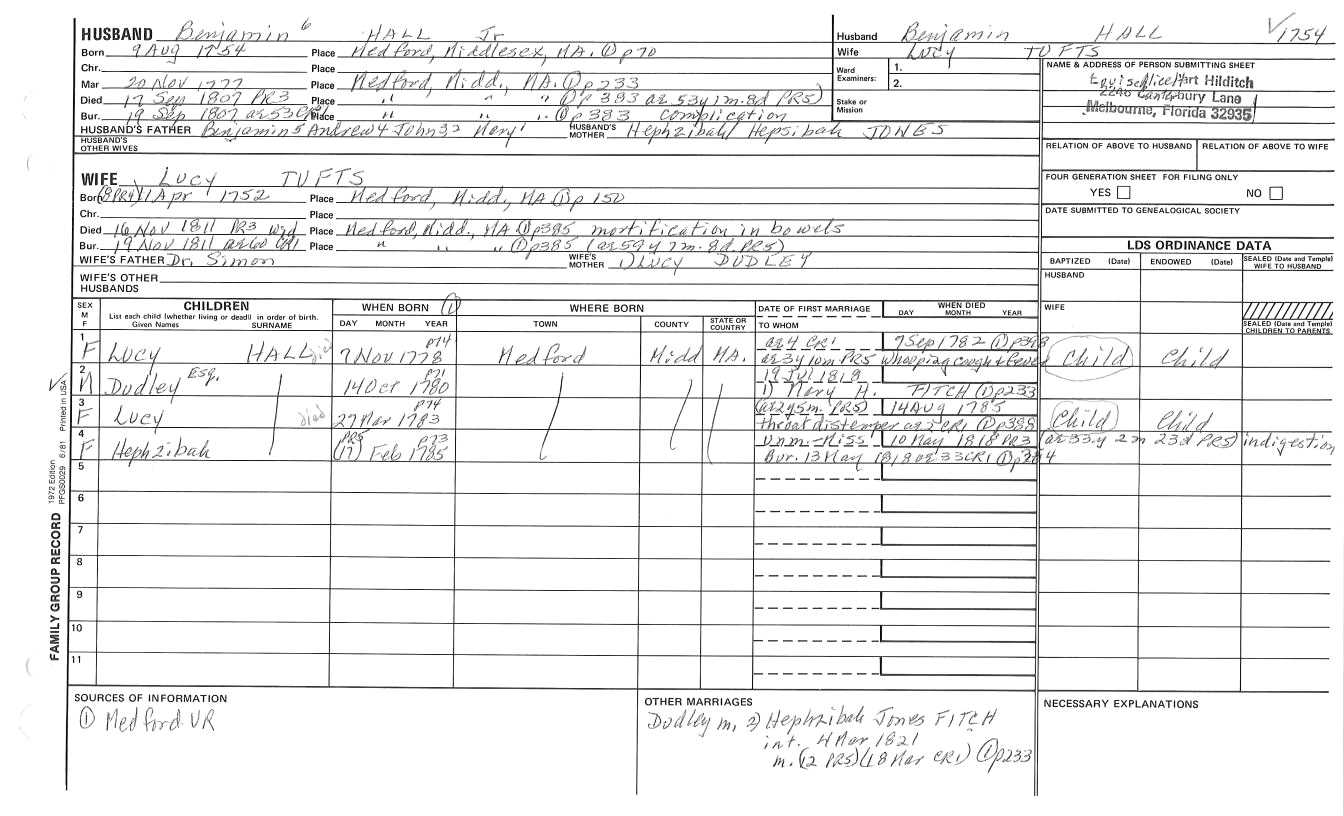 HUSBAND Benjamin 6 HALL Jr
Born 9 Aug 1754 Place Medford, Middlesex, MA. ① p70
Chr. Place
Mar 20 Nov 1777 Place Medford, Midd., MA. ① p233
Died 17 Sep 1807 PR3 Place " " " ① p383 ae 53y 1m. 8d PR5)
Bur. 19 Sep 1807 ae 53 CR1 Place " " " ① p383 complication
HUSBAND'S FATHER Benjamin 5 Andrew 4 John 32 HUSBAND'S MOTHER Hephzibah/ Hepsibah JONES
HUSBAND'S OTHER WIVES
Husband Benjamin HALL √1754
Wife LUCY TUFTS
Ward Examiners: 1.
2.
Stake or Mission
NAME & ADDRESS OF PERSON SUBMITTING SHEET
Hart Hilditch
2240 Canterbury Lane
Melbourne, Florida 32935
RELATION OF ABOVE TO HUSBAND RELATION OF ABOVE TO WIFE
FOUR GENERATION SHEET FOR FILING ONLY
YES NO
DATE SUBMITTED TO GENEALOGICAL SOCIETY
WIFE LUCY TUFTS
Born (8 PR4) 11 Apr 1752 Place Medford, Midd., MA ① p 150
Chr. Place
Died 16 Nov 1811 PR3 wid Place Medford, Midd., MA ① p385 mortification in bowels
Bur. 19 Nov 1811 ae 60 CR1 Place " " " ① p385 (ae 59y 7m. 8d. PR5)
WIFE'S FATHER Dr. Simon WIFE'S MOTHER 1) LUCY DUDLEY
WIFE'S OTHER HUSBANDS
LDS ORDINANCE DATA
BAPTIZED (Date) ENDOWED (Date) SEALED (Date and Temple) WIFE TO HUSBAND
HUSBAND
WIFE
SEALED (Date and Temple) CHILDREN TO PARENTS
SEX M F CHILDREN WHEN BORN ① WHERE BORN DATE OF FIRST MARRIAGE WHEN DIED
List each child (whether living or dead) in order of birth. DAY MONTH YEAR TOWN COUNTY STATE OR COUNTRY TO WHOM DAY MONTH YEAR
Given Names SURNAME
1 F LUCY HALL died 7 Nov 1778 p74 Medford Midd MA. ae 4 CR1 7 Sep 1782 ① p398 Child Child
ae 3y 10m PR5 whooping cough & fever
2 M Dudley Esq. 14 Oct 1780 p71 19 Jul 1818
1) Mary H. FITCH ① p233
3 F Lucy died 27 Mar 1783 p74 (ae 2y 5m. PR5) 14 Aug 1785 Child Child
throat distemper ae 2 CR1 ① p388
4 F Hephzibah PR5 (17) Feb 1785 p73 Unm.-Miss 10 May 1818 PR3 (ae 33y 2m 23d PR5) indigestion
Bur. 13 May 1818 ae 33 CR1 ①
5
6
7
8
9
10
11
FAMILY GROUP RECORD 1972 Edition PFGS0029 6/81 Printed in USA
SOURCES OF INFORMATION
① Medford VR
OTHER MARRIAGES
Dudley m. 2) Hephzibah Jones FITCH
int. 4 Mar 1821
m. (2 PR5) (18 Mar CR1) ① p233
NECESSARY EXPLANATIONS